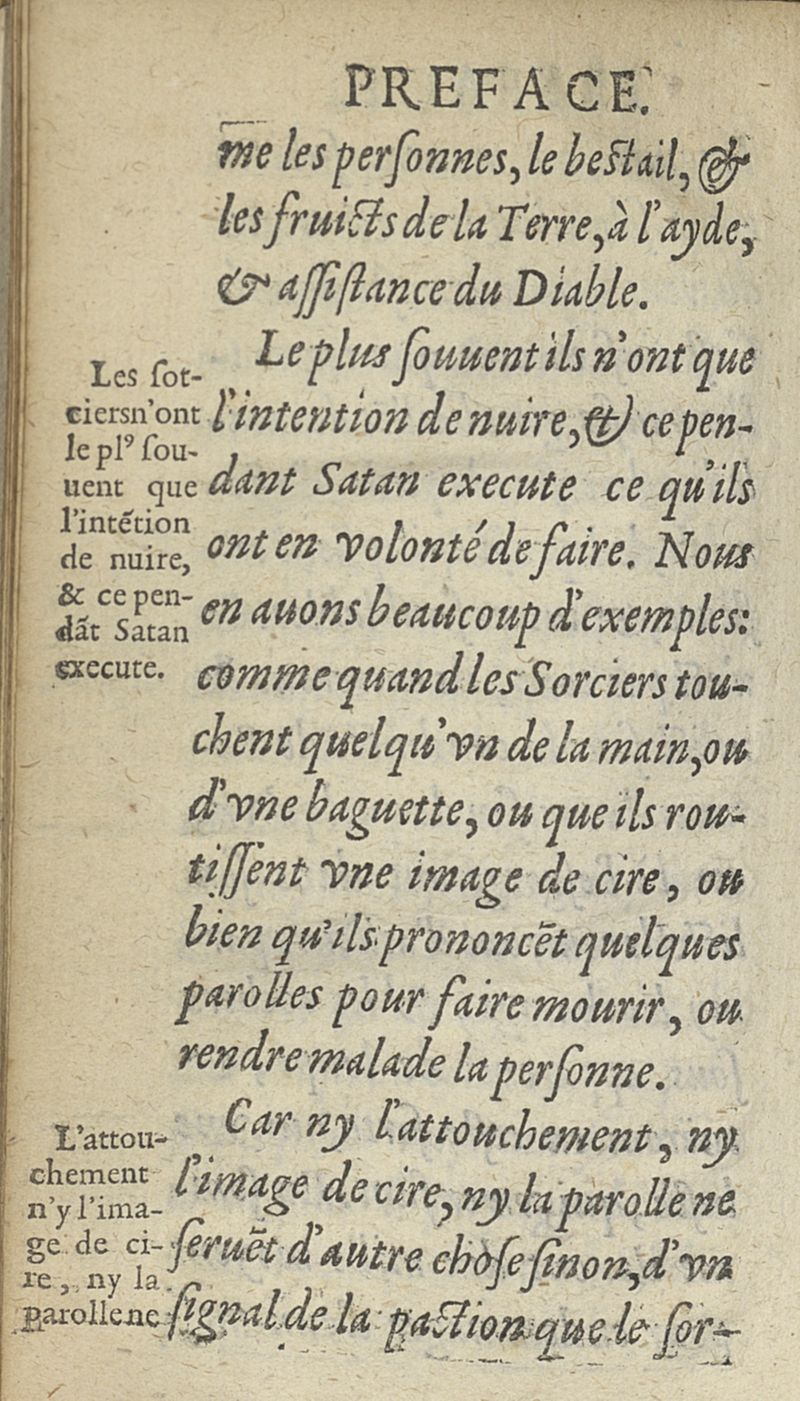 PREFACE.
me les perſonnes, le beſtail, &
les fruicts de la Terre, à l'ayde,
& aſſiſtance du Diable.
Le plus ſouuent ils n'ont que
l'intention de nuire, & cepen-
dant Satan execute ce qu'ils
ont en volonté de faire. Nous
en auons beaucoup d'exemples:
comme quand les Sorciers tou-
chent quelqu'vn de la main, ou
d'vne baguette, ou que ils rou-
tiſſent vne image de cire, ou
bien qu'ils prononcẽt quelques
parolles pour faire mourir, ou
rendre malade la perſonne.
Car ny l'attouchement, ny
l'image de cire, ny la parolle ne
ſeruẽt d'autre choſe ſinon, d'vn
ſignal de la paction que le ſor-
Les ſot-
ciersn'ont
le plꝰ ſou-
uent que
l'intẽtion
de nuire,
& ce pen-
dãt Satan
execute.
L'attou-
chement
n'y l'ima-
ge de ci-
re, ny la
parolle ne